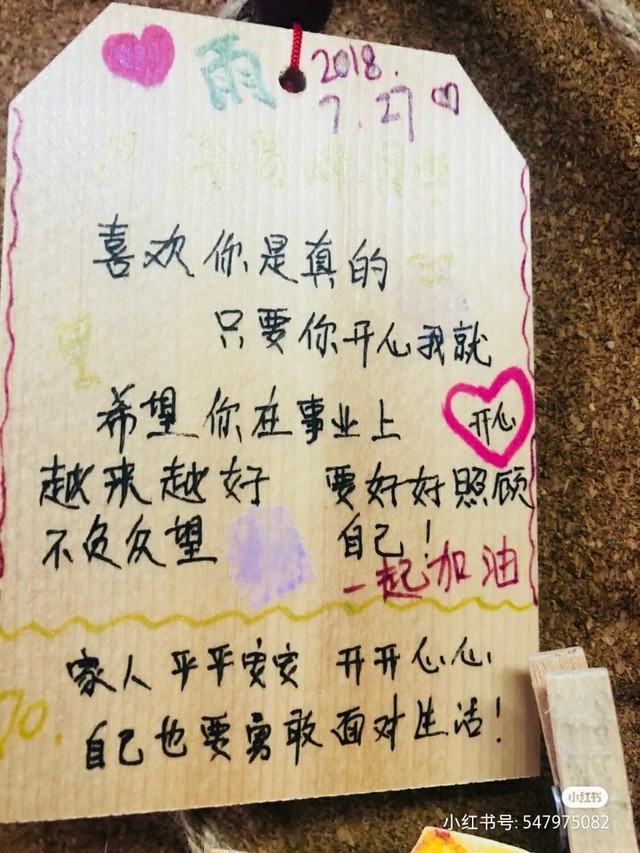 雨 2018.
7.27
喜欢你是真的
只要你开心我就
开心
希望你在事业上
越来越好 要好好照顾
不负众望 自己！
一起加油
家人平平安安 开开心心
自己也要勇敢面对生活！
小红书
小红书号: 547975082